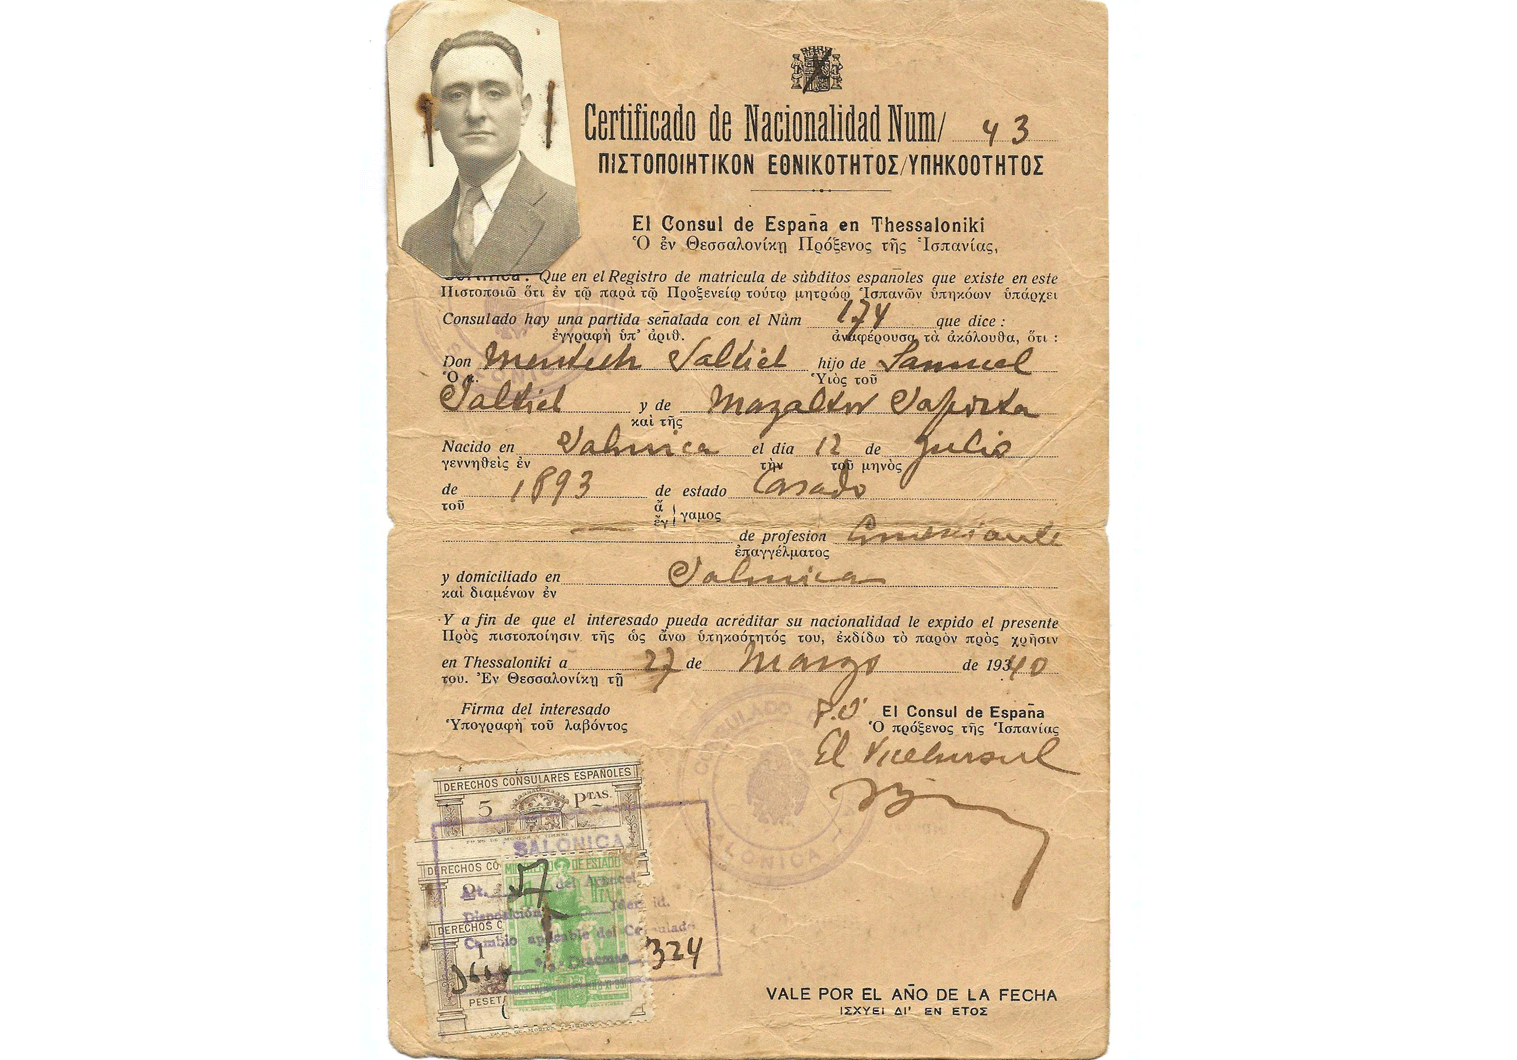 Certificado de Nacionalidad Num/ 43
ΠΙΣΤΟΠΟΙΗΤΙΚΟΝ ΕΘΝΙΚΟΤΗΤΟΣ/ΥΠΗΚΟΟΤΗΤΟΣ
El Consul de España en Thessaloniki
Ὁ ἐν Θεσσαλονίκῃ Πρόξενος τῆς Ἱσπανίας,
Certifica: Que en el Registro de matricula de sùbditos españoles que existe en este
Πιστοποιῶ ὅτι ἐν τῷ παρὰ τῷ Προξενείῳ τούτῳ μητρώῳ Ἱσπανῶν ὑπηκόων ὑπάρχει
Consulado hay una partida señalada con el Nùm 174 que dice :
ἐγγραφὴ ὑπ' ἀριθ. ἀναφέρουσα τὰ ἀκόλουθα, ὅτι :
Don Mentech Saltiel hijo de Samuel
Ὁ κ. Ὑιὸς τοῦ
Saltiel y de Mazaltov Saporta
καὶ τῆς
Nacido en Salonica el dia 12 de Julio
γεννηθεὶς ἐν τὴν τοῦ μηνὸς
de 1893 de estado Casado
τοῦ ἄ ἔγ γαμος
de profesion Comerciante
ἐπαγγέλματος
y domiciliado en Salonica
καὶ διαμένων ἐν
Y a fin de que el interesado pueda acreditar su nacionalidad le expido el presente
Πρὸς πιστοποίησιν τῆς ὡς ἄνω ὑπηκοότητός του, ἐκδίδω τὸ παρὸν πρὸς χρῆσιν
en Thessaloniki a 27 de Marzo de 1940
του. Ἐν Θεσσαλονίκῃ τῇ
Firma del interesado P.O. El Consul de España
Ὑπογραφὴ τοῦ λαβόντος Ὁ πρόξενος τῆς Ἱσπανίας
El Viceconsul
CONSULADO
SALONICA
DERECHOS CONSULARES ESPAÑOLES
5 PTAS.
SALONICA
DERECHOS CO
MINISTERIO DE ESTADO
Art. 7 del Arancel
Disposición Idem id.
DERECHOS C
Cambio aplicable del Consulado
1
Dracmas 324
PESETA
VALE POR EL AÑO DE LA FECHA
ΙΣΧΥΕΙ ΔΙ' ΕΝ ΕΤΟΣ